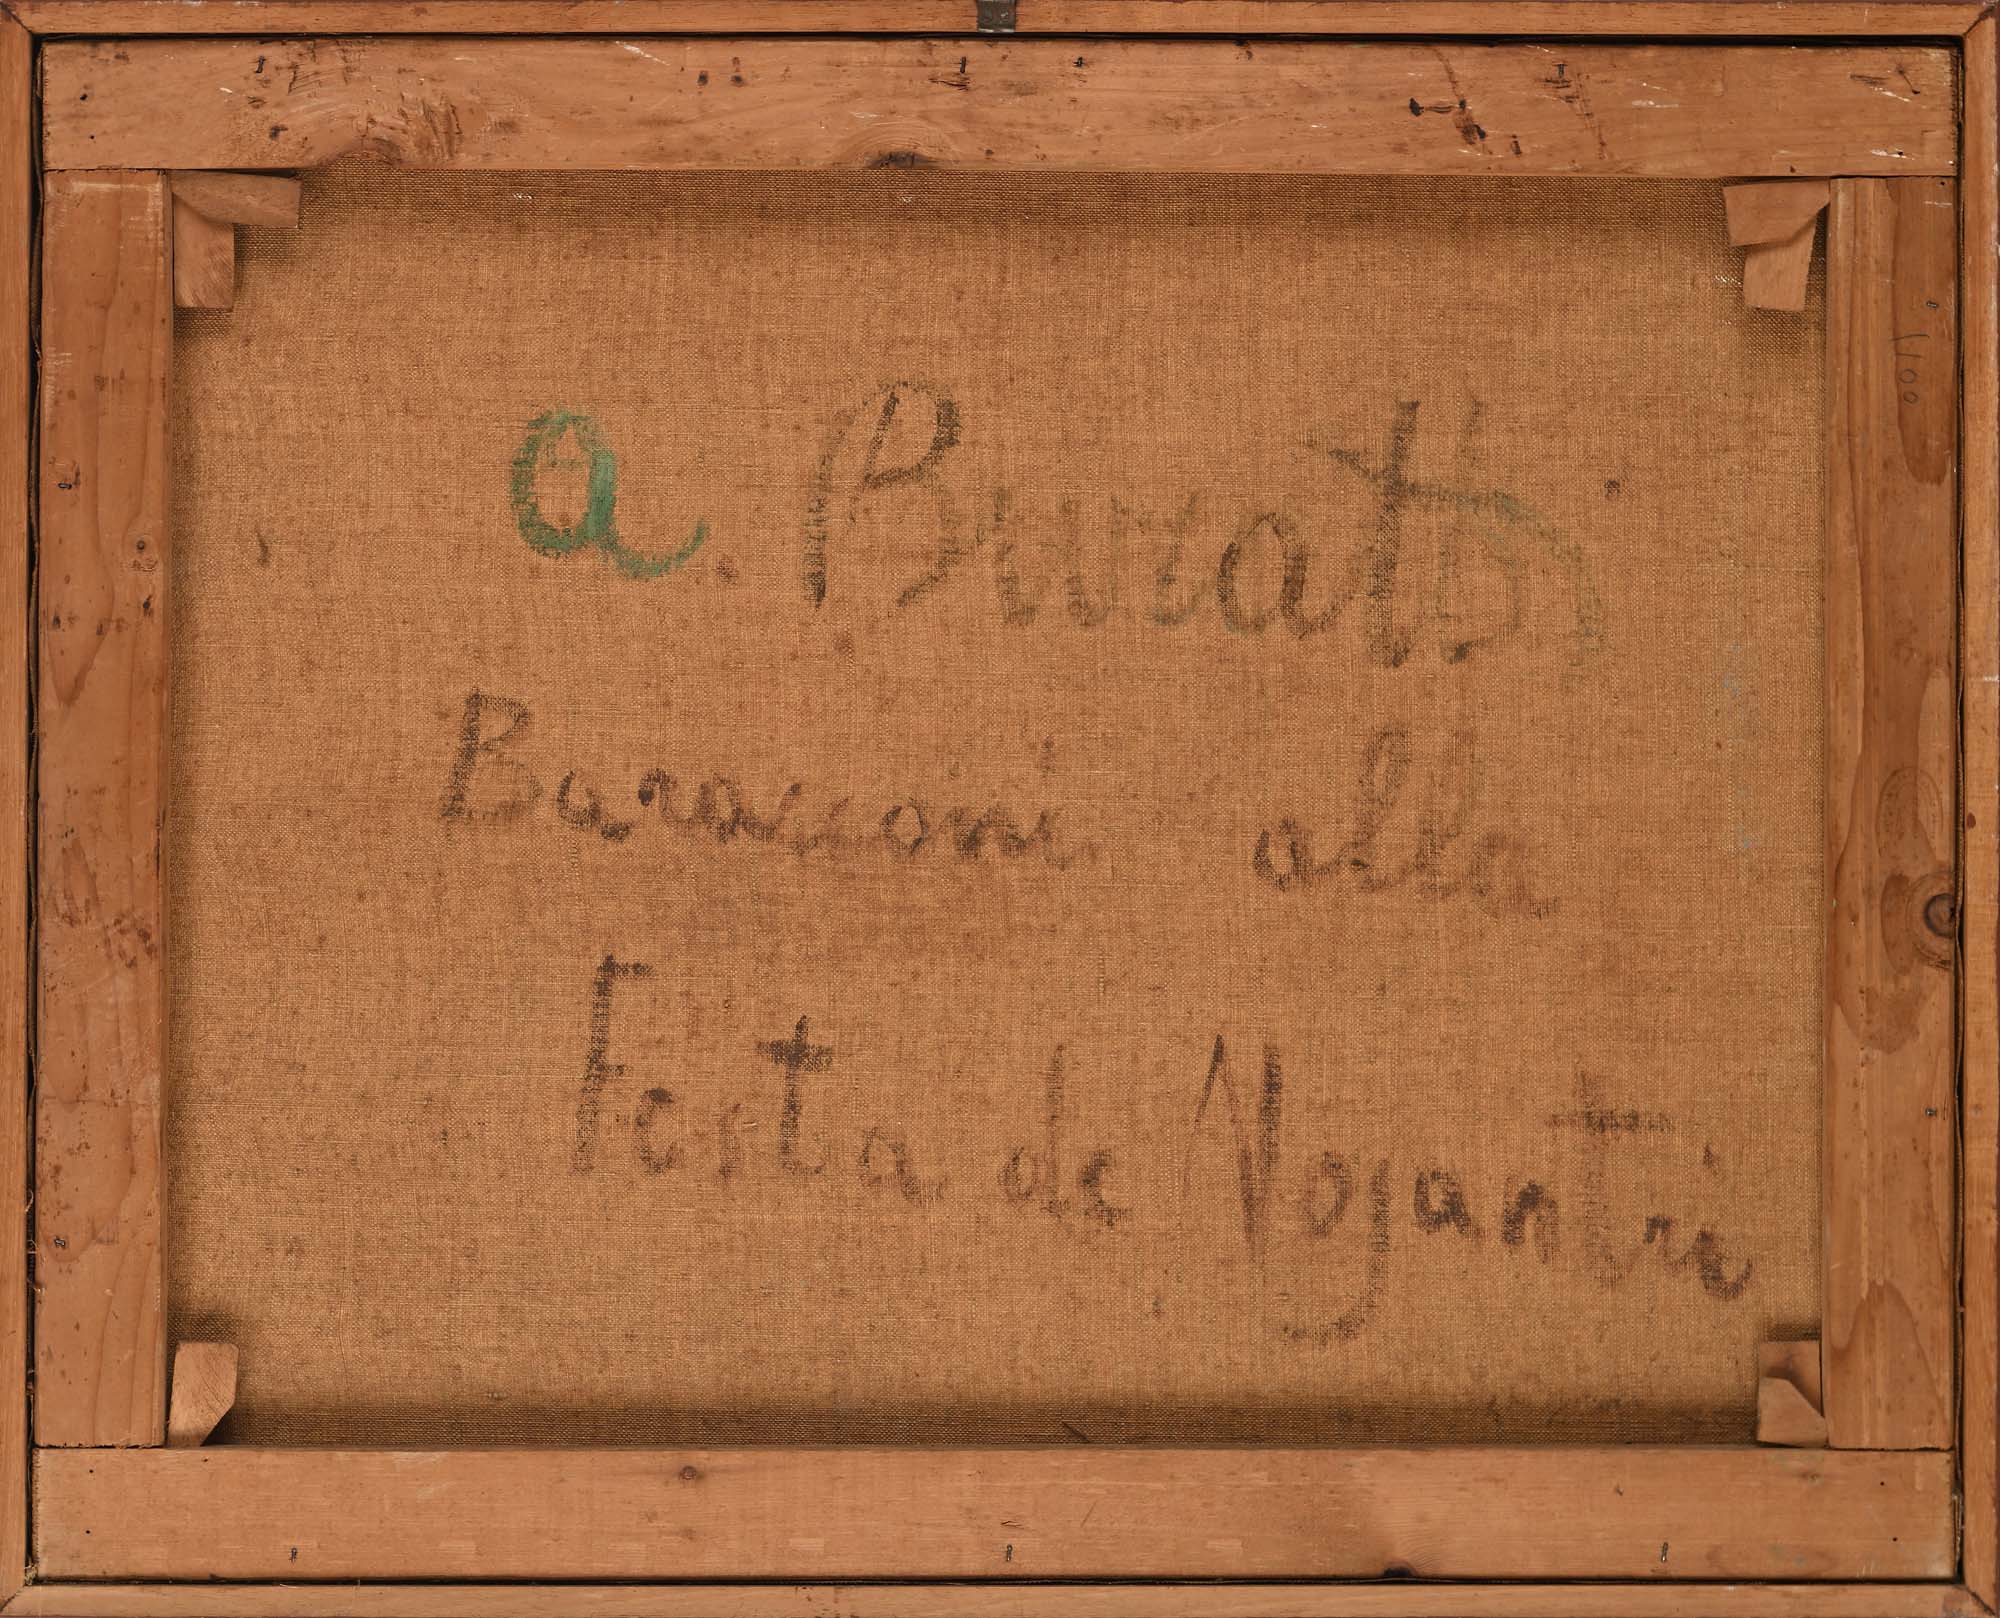 a Burati
Baracconi alla
Festa de Nojantri
1100